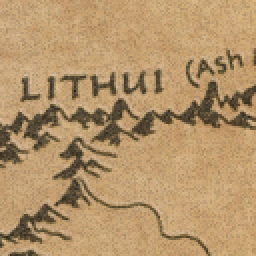 LITHUI (Ash